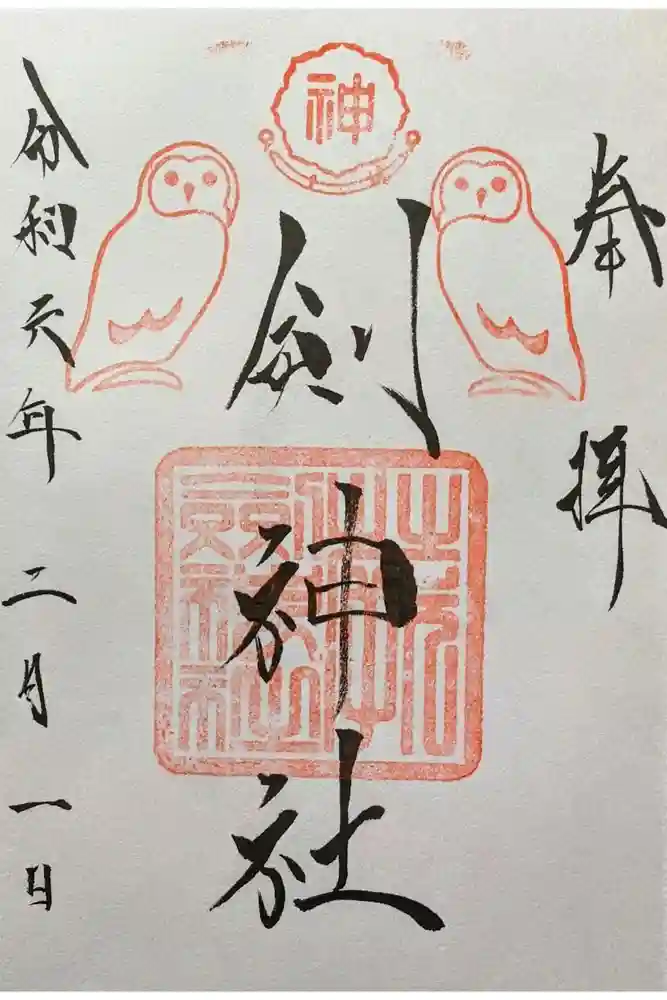 奉拝
神
剣神社
令和元年二月一日